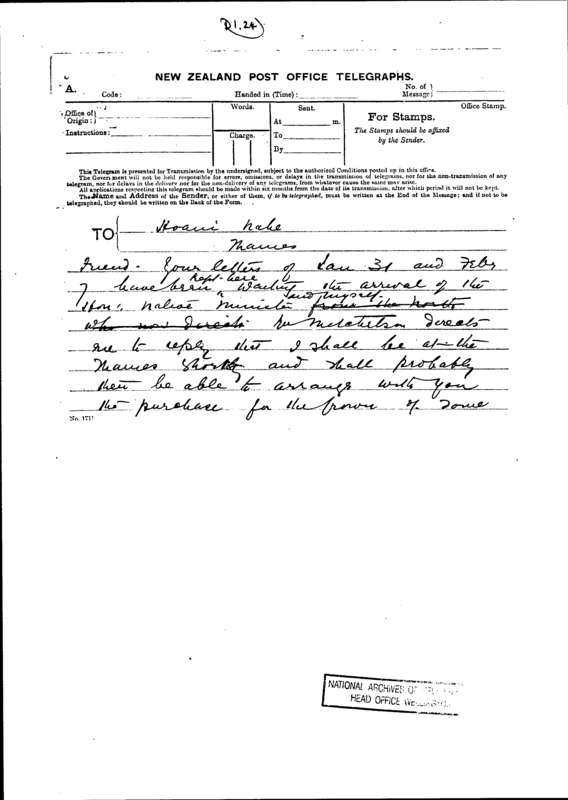 D1.24
NEW ZEALAND POST OFFICE TELEGRAPHS.
A.
Code:
Handed in (Time):
No. of Message:
Office of Origin:
Words.
Sent.
For Stamps.
Office Stamp.
At m.
The Stamps should be affixed
by the Sender.
Instructions:
Charge.
To
By
This Telegram is presented for Transmission by the undersigned, subject to the authorized Conditions posted up in this office.
The Government will not be held responsible for errors, omissions, or delays in the transmission of telegrams, nor for the non-transmission of any
telegram, nor for delays in the delivery nor for the non-delivery of any telegrams, from whatever cause the same may arise.
All applications respecting this telegram should be made within six months from the date of its transmission, after which period it will not be kept.
The Name and Address of the Sender, or either of them, if to be telegraphed, must be written at the End of the Message; and if not to be
telegraphed, they should be written on the Back of the Form.
TO
Hoani Nahe
Thames
Friend. Your letters of Jan 31 and Feby
7 have been kept here waiting the arrival of the
Hon: Native Minister and myself from the North
who now directs Mr Mitchelson directs
me to reply that I shall be at the
Thames shortly and shall probably
then be able to arrange with you
the purchase for the Crown of some
No. 171
NATIONAL ARCHIVES OF
HEAD OFFICE